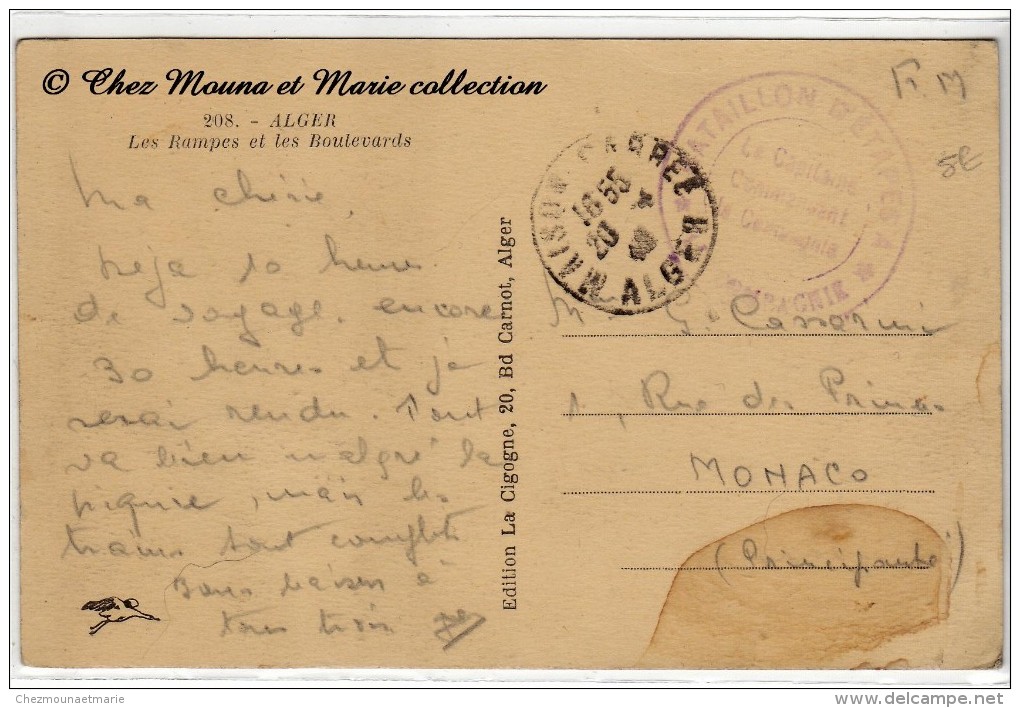 © Chez Mouna et Marie collection
208. - ALGER
Les Rampes et les Boulevards
F. M
5€
BATAILLON D'
Le Capitaine
Commandant
la Compagnie
COMPAGNIE
MAISON CARREE
16 55
20
ALGER
Ma chérie,
Déjà 10 heures
de voyage, encore
30 heures et je
serai rendu. Tout
va bien malgré la
piqure, mais les
trains sont complets
Bons baisers à
tous trois
Edition La Cigogne, 20, Bd Carnot, Alger
M G. Cassarini
1, Rue des Princes
MONACO
(Principauté)
Chezmounaetmarie
delcampe.net